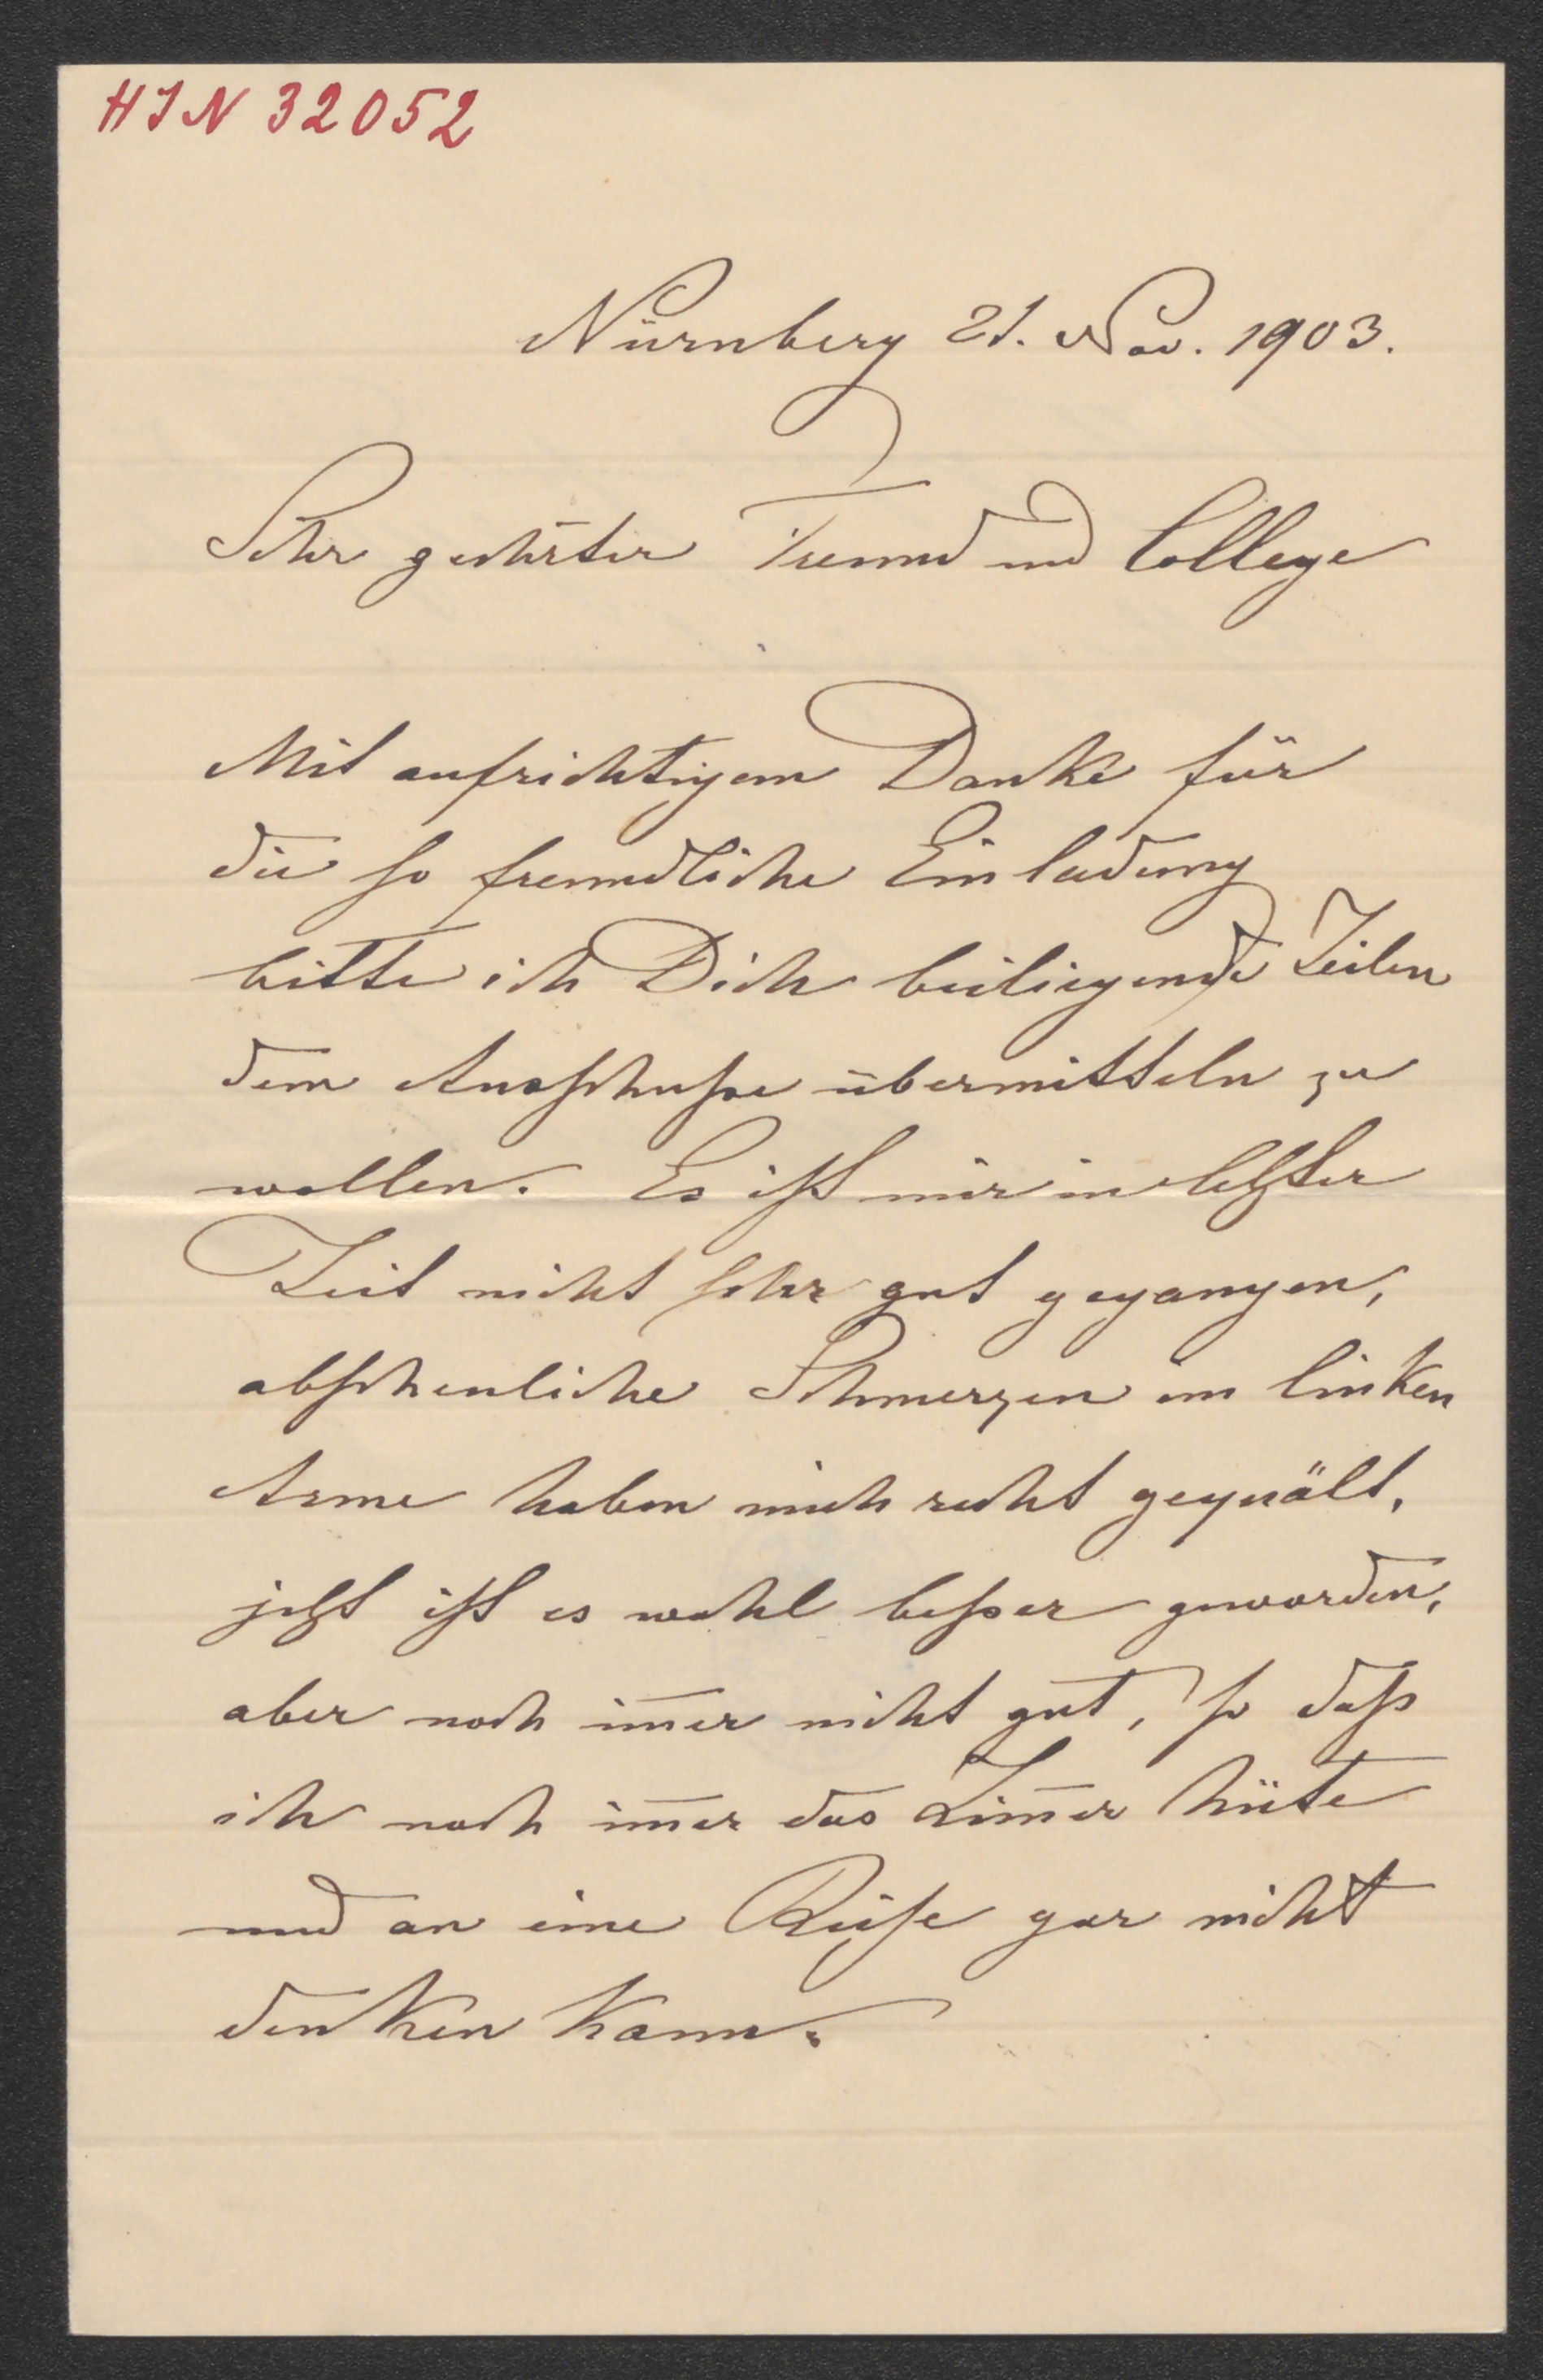 HJN 32052
Nürnberg 21. Nov. 1903.
Sehr geehrter Freund und College
Mit aufrichtigem Danke für
die so freundliche Einladung
bitte ich Dich beiliegende Zeilen
dem Ausschusse übermitteln zu
wollen. Es ist mir in letzter
Zeit nicht sehr gut gegangen,
abscheuliche Schmerzen im linken
Arme haben mich recht gequält,
jetzt ist es wohl besser geworden,
aber noch im̅er nicht gut, so dass
ich noch im̅er das Zim̅er hüte
und an eine Reise gar nicht
denken kann.